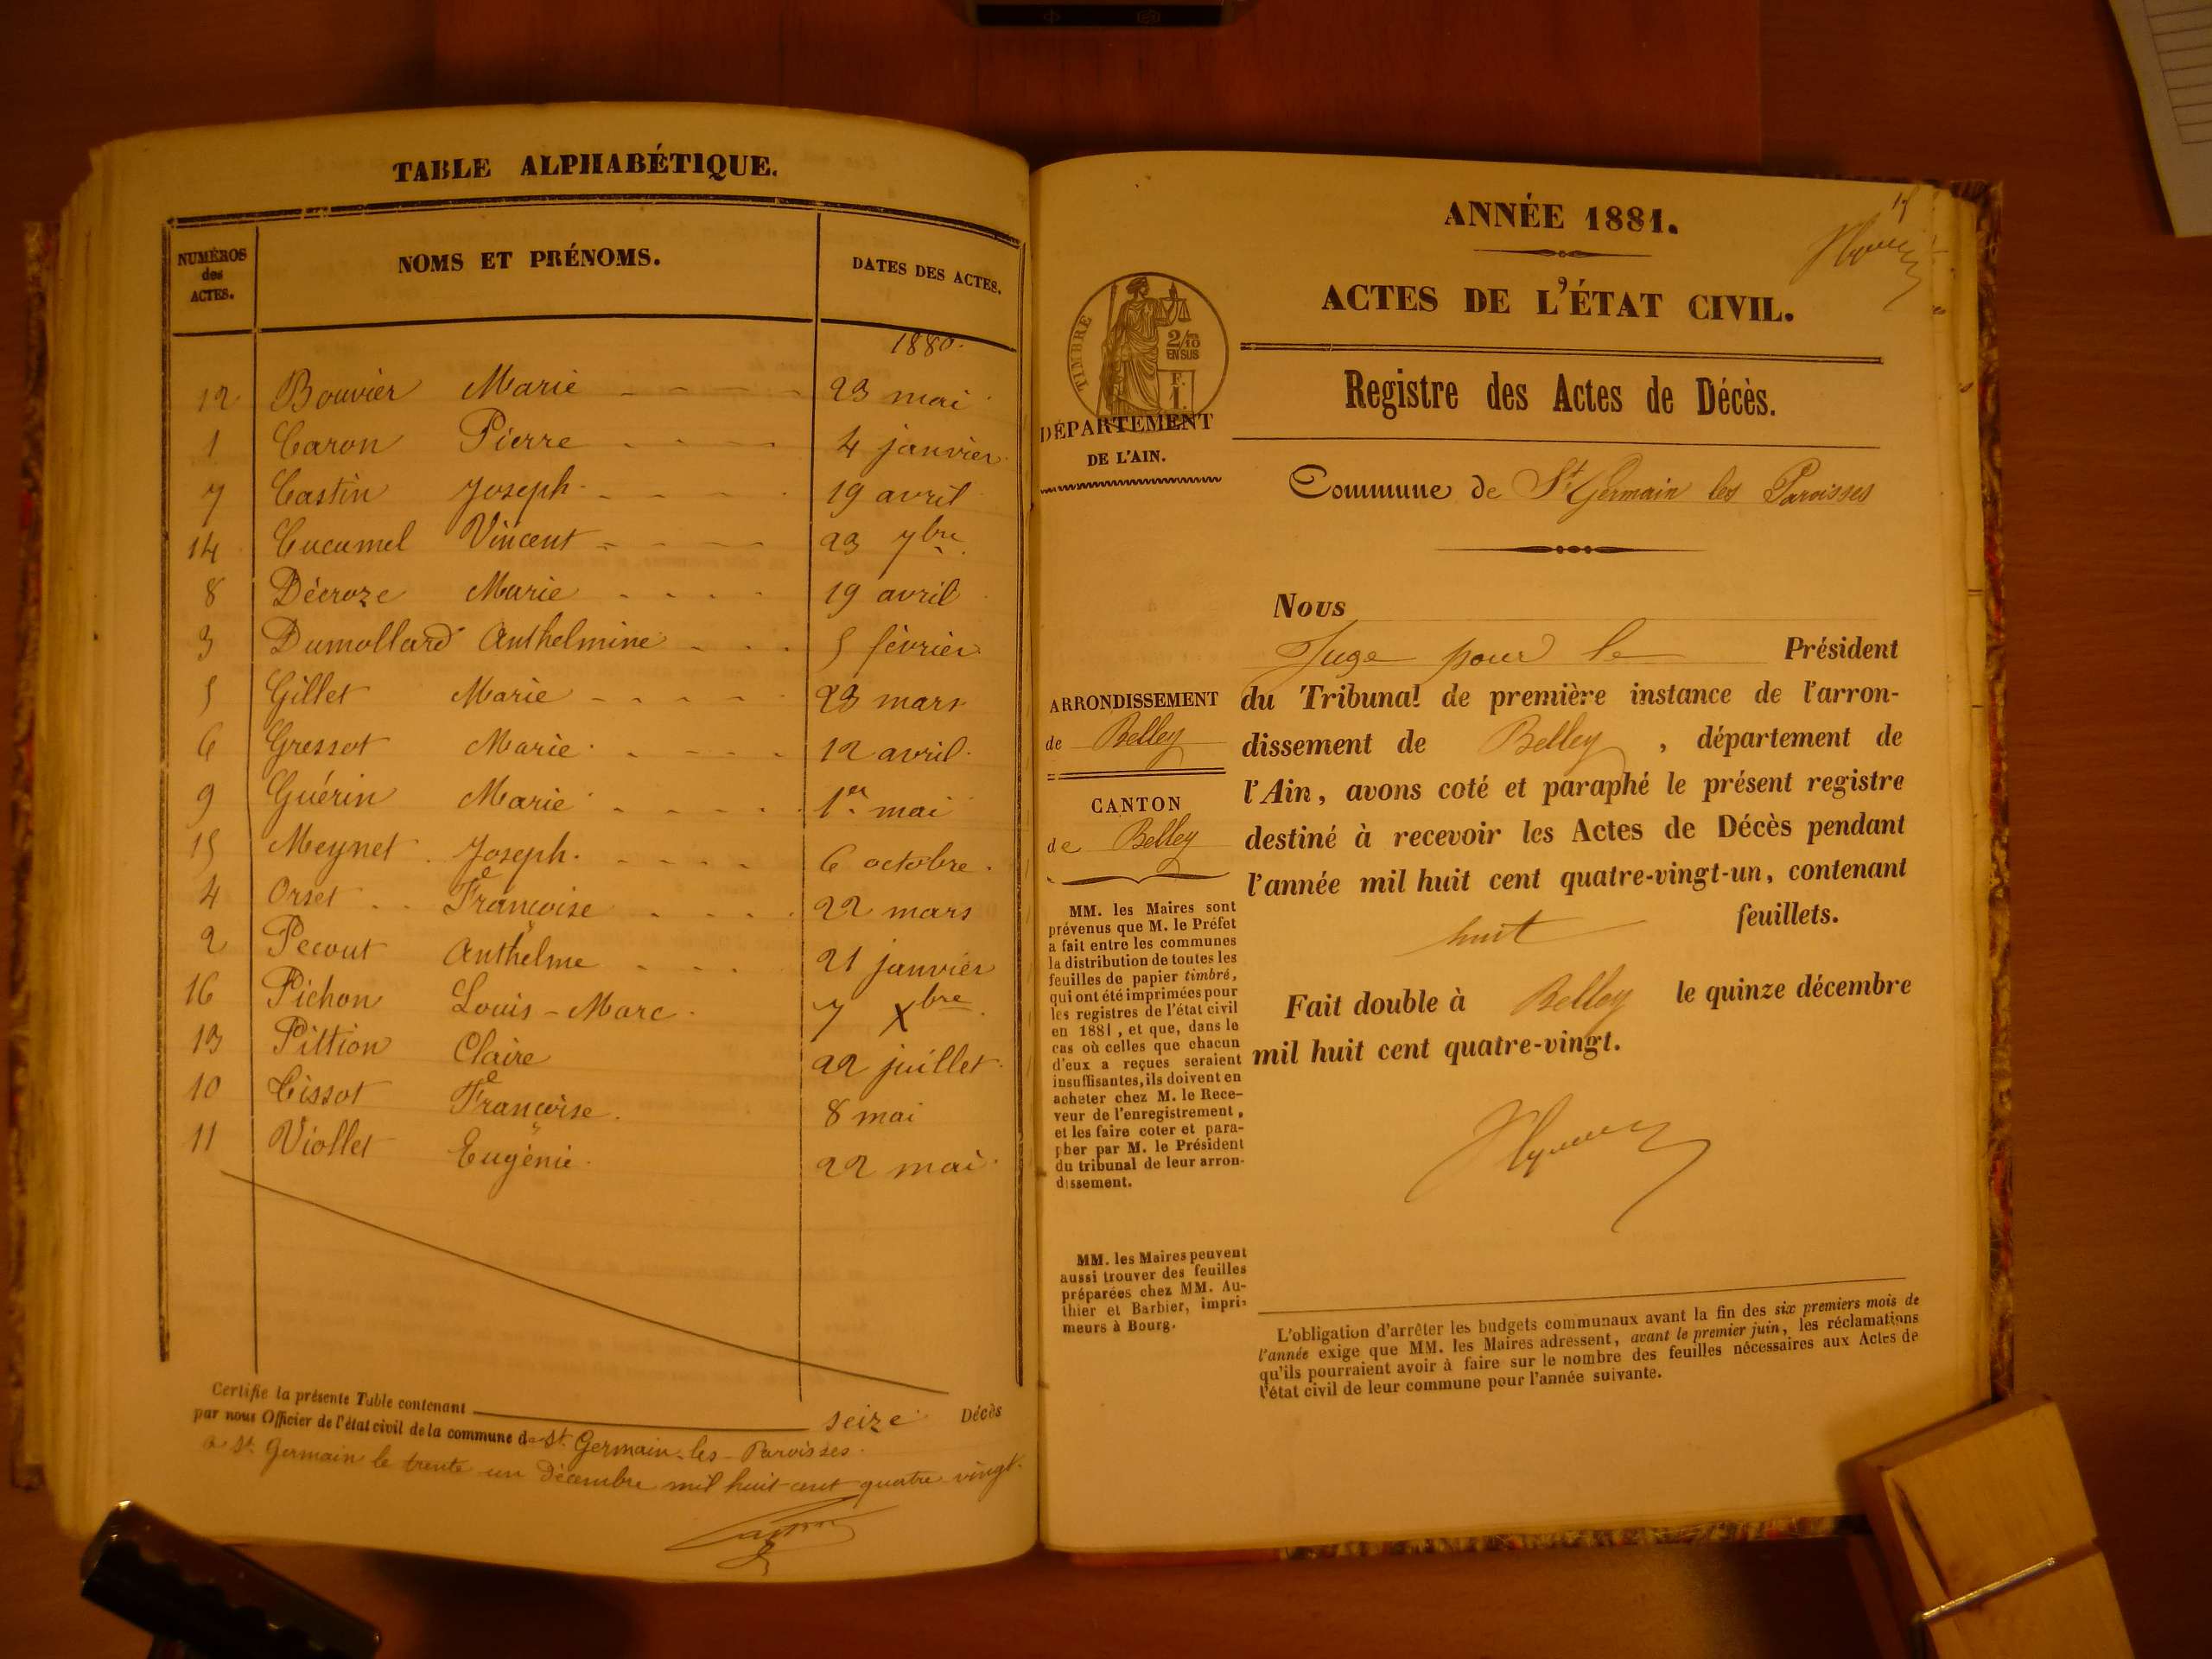 TABLE ALPHABÉTIQUE.
NUMÉROS
des
ACTES.
NOMS ET PRÉNOMS.
DATES DES ACTES.
1880.
12 Bouvier Marie 23 mai
1 Caron Pierre 4 janvier
7 Castin Joseph 19 avril
14 Cucumel Vincent 23 7bre
8 Décroze Marie 19 avril
3 Dumollard Anthelmine 5 février
5 Gillet Marie 23 mars
6 Gressot Marie 12 avril
9 Guérin Marie 1er mai
15 Meynet Joseph 6 octobre
4 Orset Françoise 22 mars
2 Pecout Anthelme 21 janvier
16 Pichon Louis-Marc 7 Xbre
13 Pittion Claire 22 juillet
10 Tissot Françoise 8 mai
11 Viollet Eugénie 22 mai
Certifie la présente Table contenant seize Décès
par nous Officier de l'état civil de la commune de St Germain-les-Paroisses
a St Germain le trente un décembre mil huit cent quatre vingt.
ANNÉE 1881.
ACTES DE L'ÉTAT CIVIL.
TIMBRE
2/10
EN SUS
F.
1.
DÉPARTEMENT
DE L'AIN.
Registre des Actes de Décès.
Commune de St Germain les Paroisses
Nous
Juge pour le Président
du Tribunal de première instance de l'arron-
dissement de Belley, département de
l'Ain, avons coté et paraphé le présent registre
destiné à recevoir les Actes de Décès pendant
l'année mil huit cent quatre-vingt-un, contenant
huit feuillets.
Fait double à Belley le quinze décembre
mil huit cent quatre-vingt.
ARRONDISSEMENT
de Belley
CANTON
de Belley
MM. les Maires sont
prévenus que M. le Préfet
a fait entre les communes
la distribution de toutes les
feuilles de papier timbré,
qui ont été imprimées pour
les registres de l'état civil
en 1881, et que, dans le
cas où celles que chacun
d'eux a reçues seraient
insuffisantes, ils doivent en
acheter chez M. le Rece-
veur de l'enregistrement,
et les faire coter et para-
pher par M. le Président
du tribunal de leur arron-
dissement.
MM. les Maires peuvent
aussi trouver des feuilles
préparées chez MM. Au-
thier et Barbier, impri-
meurs à Bourg.
L'obligation d'arrêter les budgets communaux avant la fin des six premiers mois de
l'année exige que MM. les Maires adressent, avant le premier juin, les réclamations
qu'ils pourraient avoir à faire sur le nombre des feuilles nécessaires aux Actes de
l'état civil de leur commune pour l'année suivante.